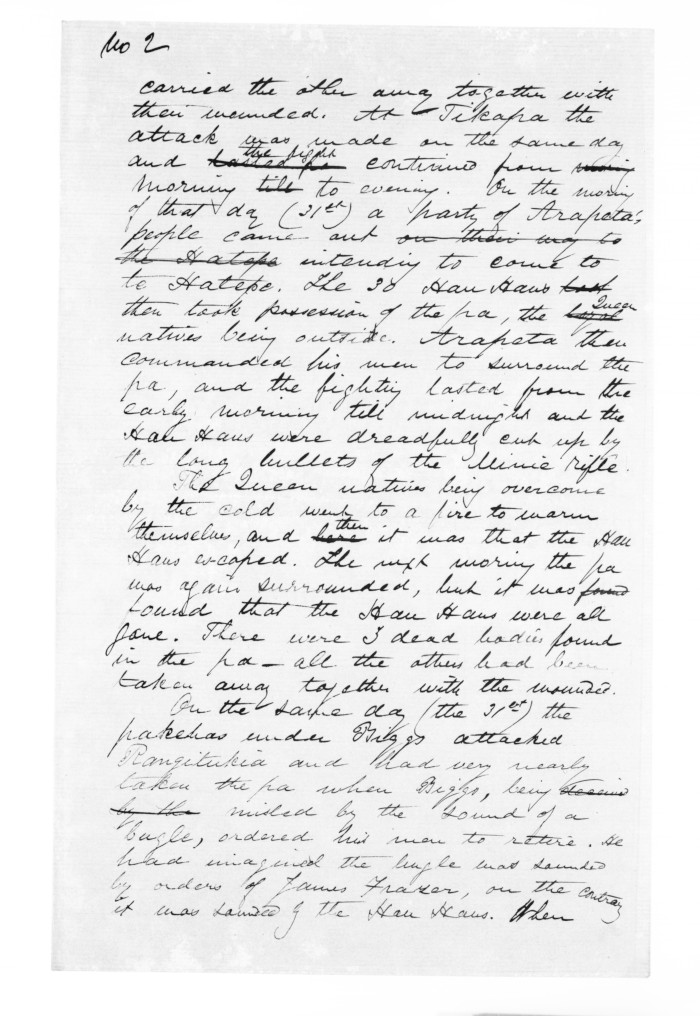 No 2
carried the other away together with
their wounded. At Tikapa the
attack was made on the same day
the fight
and lasted continued from
morning till to evening. On the morning
of that day (31st) a party of Arapeta's
people came out on their way to
the Hatepe intending to come to
to Hatepe. The 30 Hau Haus
Queen
then took possession of the pa, the loyal
natives being outside. Arapeta then
commanded his men to surround the
pa, and the fighting lasted from the
early morning till midnight and the
Hau Haus were dreadfully cut up by
the long bullets of the Minie rifle.
The Queen natives being overcome
by the cold went to a fire to warm
then
themselves, and here it was that the Hau
Haus escaped. The next morning the pa
was again surrounded, but it was found
found that the Hau Haus were all
gone. There were 3 dead bodies found
in the pa – all the others had been
taken away together with the wounded.
On the same day (the 31st) the
pakehas under Biggs attacked
Rangitukia and had very nearly
taken the pa when Biggs, being
by the misled by the sound of a
bugle, ordered his men to retire. He
had imagined the bugle was sounded
by orders of James Frazer, on the contrary
it was sounded by the Hau Haus. When